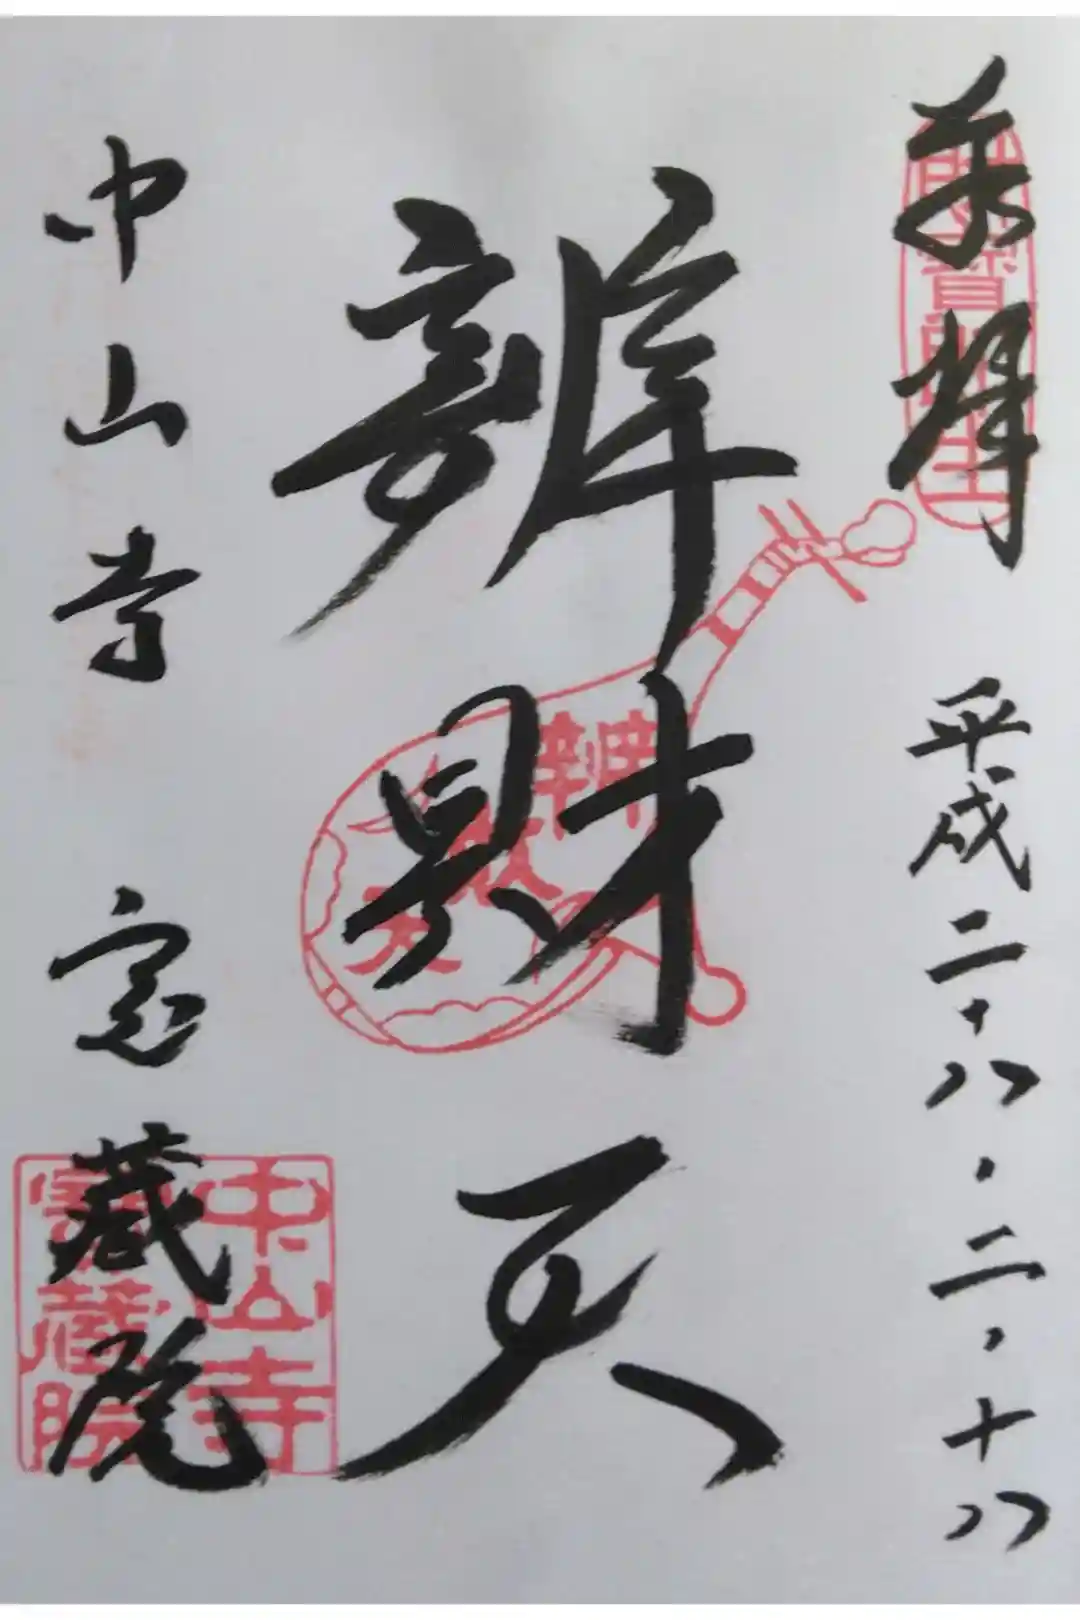 奉拝 平成二十八・二・十八
辨財天
中山寺 宝蔵院
辨
財
天
中山寺
寳蔵院